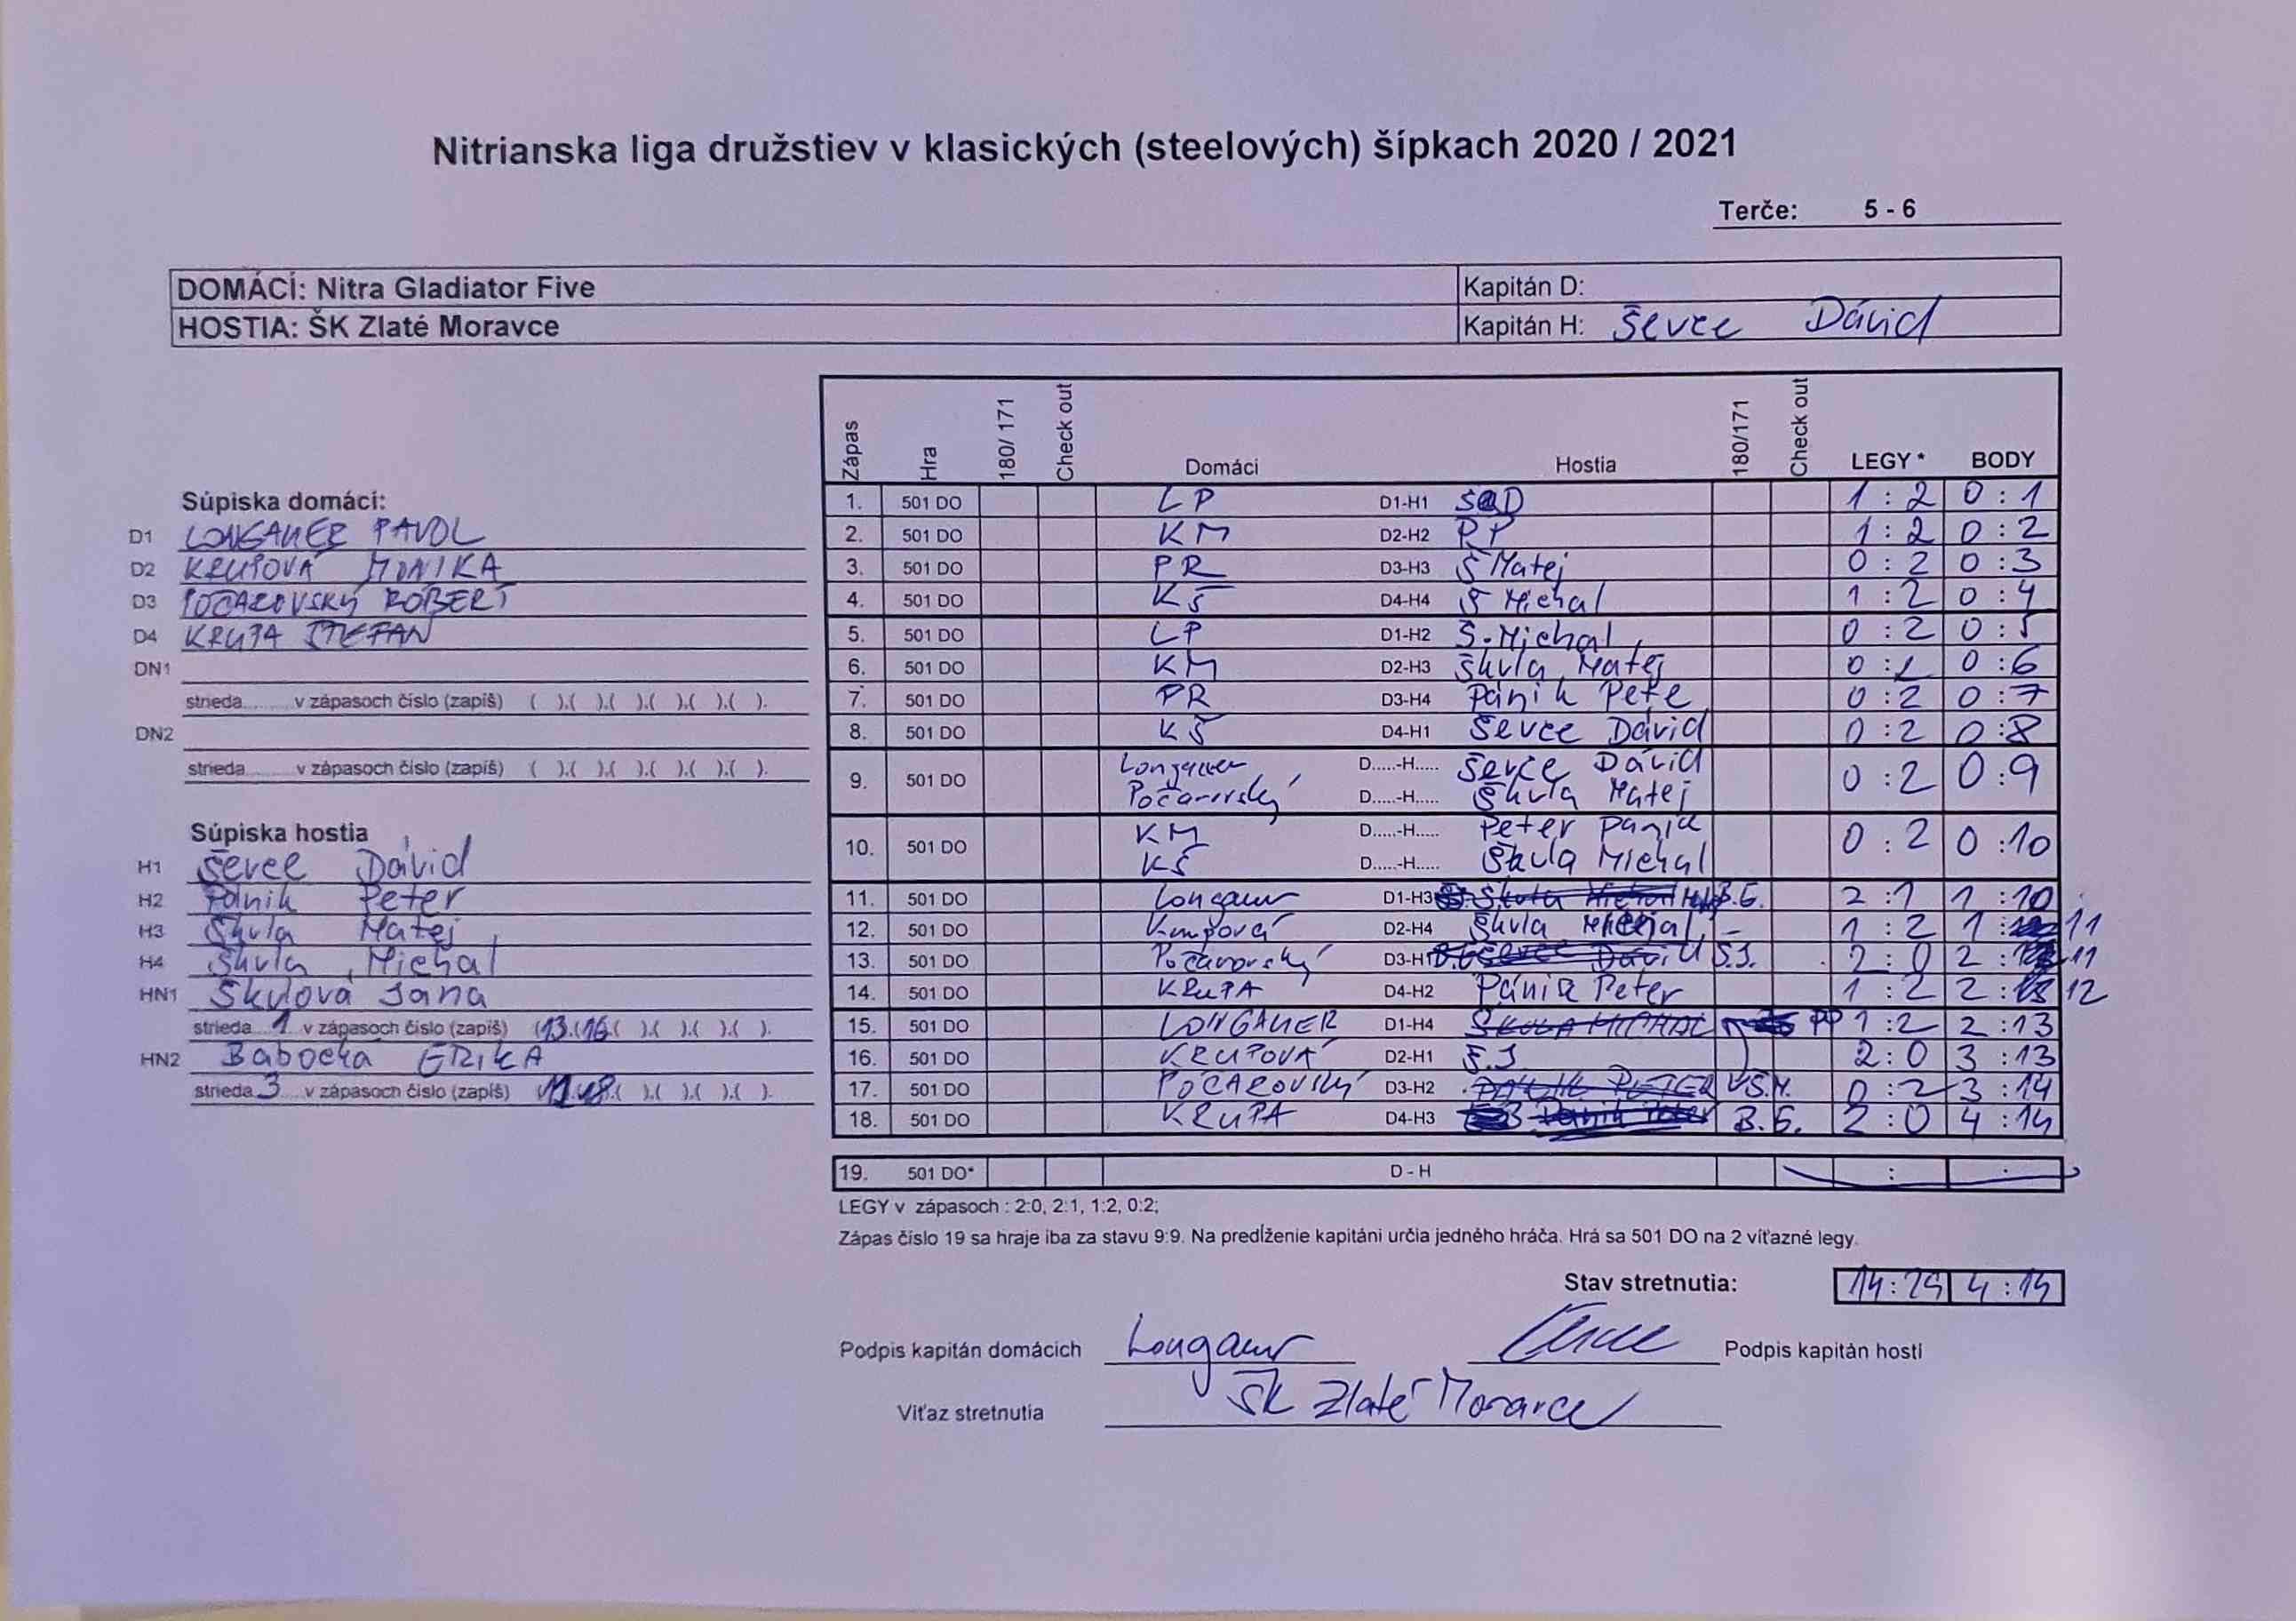 Nitrianska liga družstiev v klasických (steelových) šípkach 2020 / 2021
Terče: 5 - 6
DOMÁCI: Nitra Gladiator Five Kapitán D:
HOSTIA: ŠK Zlaté Moravce Kapitán H: Ševce Dávid
Súpiska domáci:
D1 LONGAUER PAVOL
D2 KRUPOVÁ MONIKA
D3 POČAROVSKÝ ROBERT
D4 KRUPA ŠTEFAN
DN1
strieda........ v zápasoch číslo (zapíš) ( ).( ).( ).( ).( ).( ).
DN2
strieda........ v zápasoch číslo (zapíš) ( ).( ).( ).( ).( ).( ).
Súpiska hostia
H1 Ševce Dávid
H2 Pánik Peter
H3 Škula Matej
H4 Škula Michal
HN1 Škulová Jana
strieda 1 v zápasoch číslo (zapíš) (13.(16.( ).( ).( ).( ).
HN2 Babocká ERIKA
strieda 3 v zápasoch číslo (zapíš) ( ).( ).( ).( ).
Zápas Hra 180/ 171 Check out Domáci Hostia 180/171 Check out LEGY * BODY
1. 501 DO LP D1-H1 1 : 2 0 : 1
2. 501 DO KM D2-H2 PP 1 : 2 0 : 2
3. 501 DO PR D3-H3 Š Matej 0 : 2 0 : 3
4. 501 DO KŠ D4-H4 Š Michal 1 : 2 0 : 4
5. 501 DO LP D1-H2 Š. Michal 0 : 2 0 : 5
6. 501 DO KM D2-H3 Škula Matej 0 : 2 0 : 6
7. 501 DO PR D3-H4 Pánik Pete 0 : 2 0 : 7
8. 501 DO KŠ D4-H1 Ševce Dávid 0 : 2 0 : 8
9. 501 DO Longauer D.....-H..... Ševce Dávid 0 : 2 0 : 9
Počarovský D.....-H..... Škula Matej
10. 501 DO KM D.....-H..... Peter Pánik 0 : 2 0 : 10
KŠ D.....-H..... Škula Michal
11. 501 DO Longauer D1-H3 B.E. 2 : 1 1 : 10
12. 501 DO Krupová D2-H4 Škula Michal 1 : 2 1 : 11
13. 501 DO Počarovský D3-H1 Š.J. 2 : 0 2 : 11
14. 501 DO KRUPA D4-H2 Pánik Peter 1 : 2 2 : 12
15. 501 DO LONGAUER D1-H4 ŠKULA MICHAL PP 1 : 2 2 : 13
16. 501 DO KRUPOVÁ D2-H1 Š.J 2 : 0 3 : 13
17. 501 DO POČAROVSKÝ D3-H2 PÁNIK PETER Š.M. 0 : 2 3 : 14
18. 501 DO KRUPA D4-H3 B.E. 2 : 0 4 : 14
19. 501 DO* D - H : :
LEGY v zápasoch : 2:0, 2:1, 1:2, 0:2;
Zápas číslo 19 sa hraje iba za stavu 9:9. Na predĺženie kapitáni určia jedného hráča. Hrá sa 501 DO na 2 víťazné legy.
Stav stretnutia: 14 : 29 4 : 14
Podpis kapitán domácich Longauer Podpis kapitán hostí
Víťaz stretnutia ŠK Zlaté Moravce